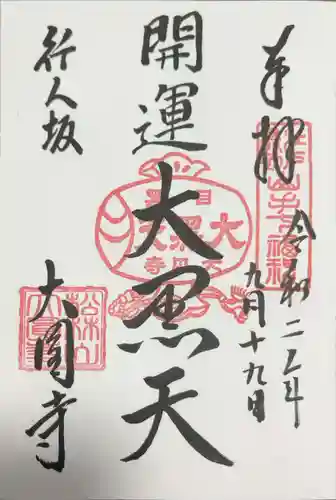 奉拝
令和二年
九月十九日
開運
大黒天
行人坂
大圓寺